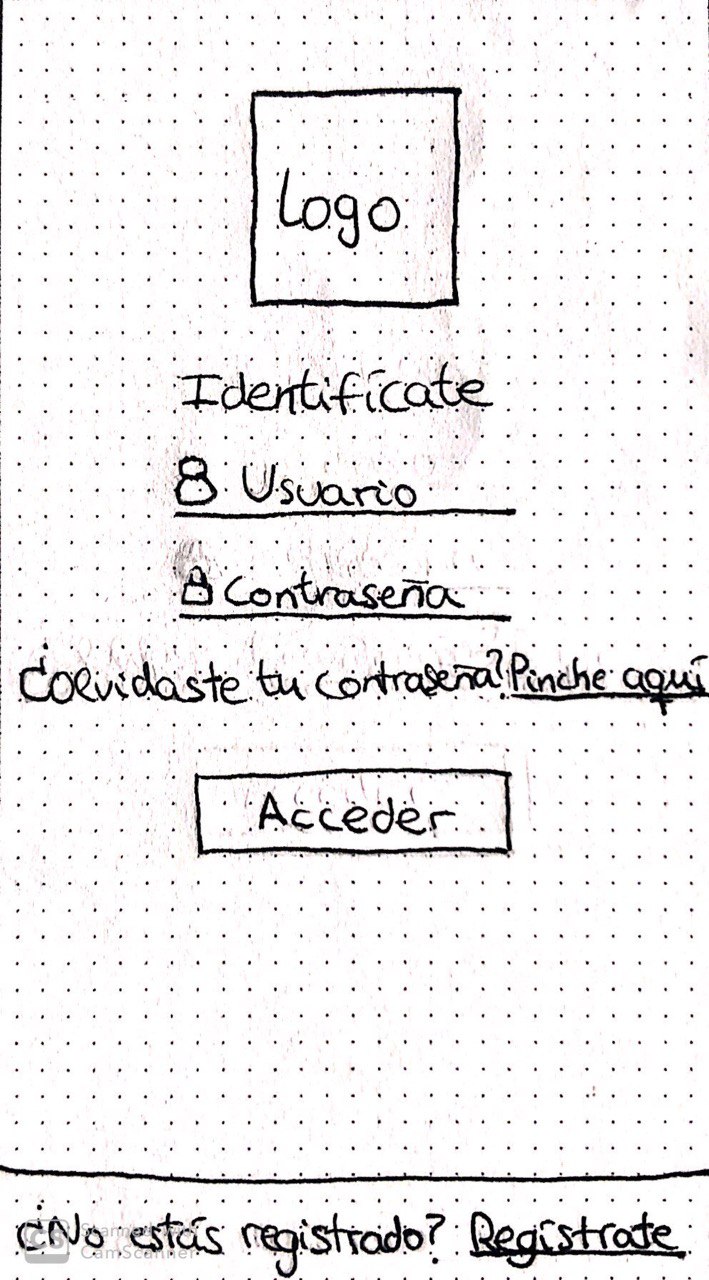 Logo
Identifícate
Usuario
Contraseña
¿Olvidaste tu contraseña? Pinche aquí
Acceder
¿No estás registrado? Regístrate
CS
CamScanner